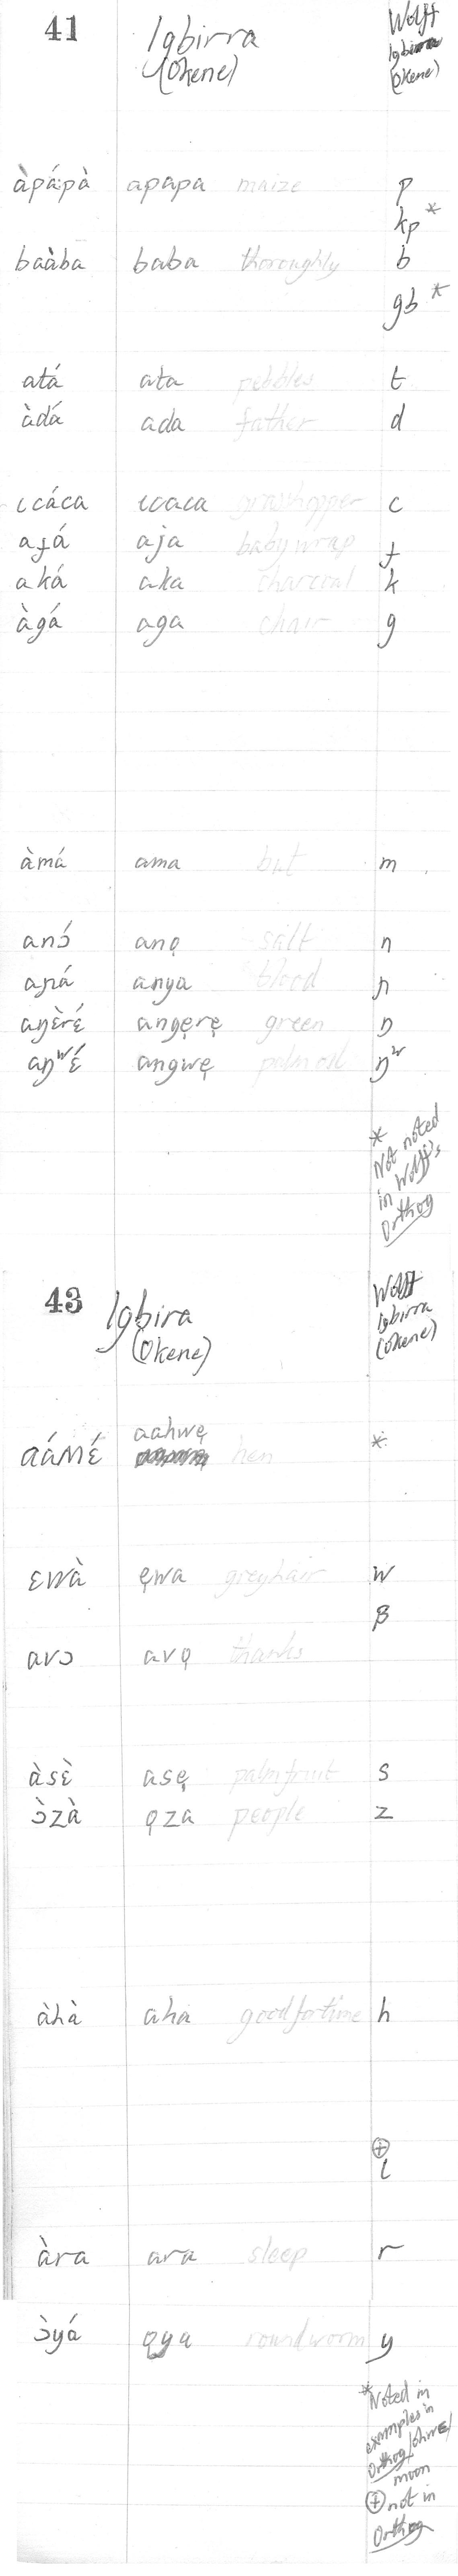 41 Igbirra Wolff
(Okene) Igbirra
(Okene)
àpápà apapa maize p
kp *
baàba baba thoroughly b
gb *
atá ata pebbles t
àdá ada father d
ɩcáca ɩcaca grasshopper c
aɟá aja baby wrap ɟ
aká aka charcoal k
àgá aga chair g
àmá ama but m
anɔ́ anọ salt n
aɲá anya blood ɲ
aŋɛ̀rɛ́ angẹrẹ green ŋ
aŋʷɛ́ angwẹ palm oil ŋʷ
*
Not noted
in Wolff's
Orthog
43 Igbira Wolff
(Okene) Igbirra
(Okene)
aahwẹ
aáʍɛ́ hen *
ɛwà ẹwa grey hair w
β
avɔ avọ thanks
àsɛ̀ asẹ palmfruit s
ɔ̀zà ọza people z
àhà aha good fortune h
⊕
l
àra ara sleep r
ɔ̀yá ọya roundworm y
* Noted in
examples in
Orthog
moon
⊕ not in
Orthog